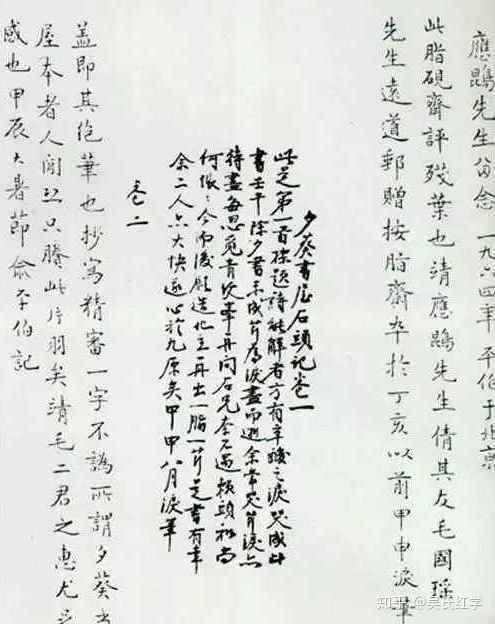 應鵾先生留念 一九六四年 平伯于北京
此脂硯齋評殘葉也靖應鵾先生倩其友毛國瑤
先生遠道郵贈按脂齋卒於丁亥以前甲申淚筆
夕葵書屋石頭記卷一
此是第一首標題詩能解者方有辛酸之淚哭成此
書壬午除夕書未成芹為淚盡而逝余常哭芹淚亦
待盡每思覓青埂峯再問石兄奈不遇賴頭和尚
何悵悵今而後願造化主再出一脂一芹是書有幸
余二人亦大快遂心於九原矣甲申八月淚筆
卷二
蓋即其絕筆也抄寫精審一字不譌所謂夕葵書
屋本者人間恐只賸此片羽矣靖毛二君之惠尤足
感也甲辰大暑節俞平伯記
知乎 @吴氏红字